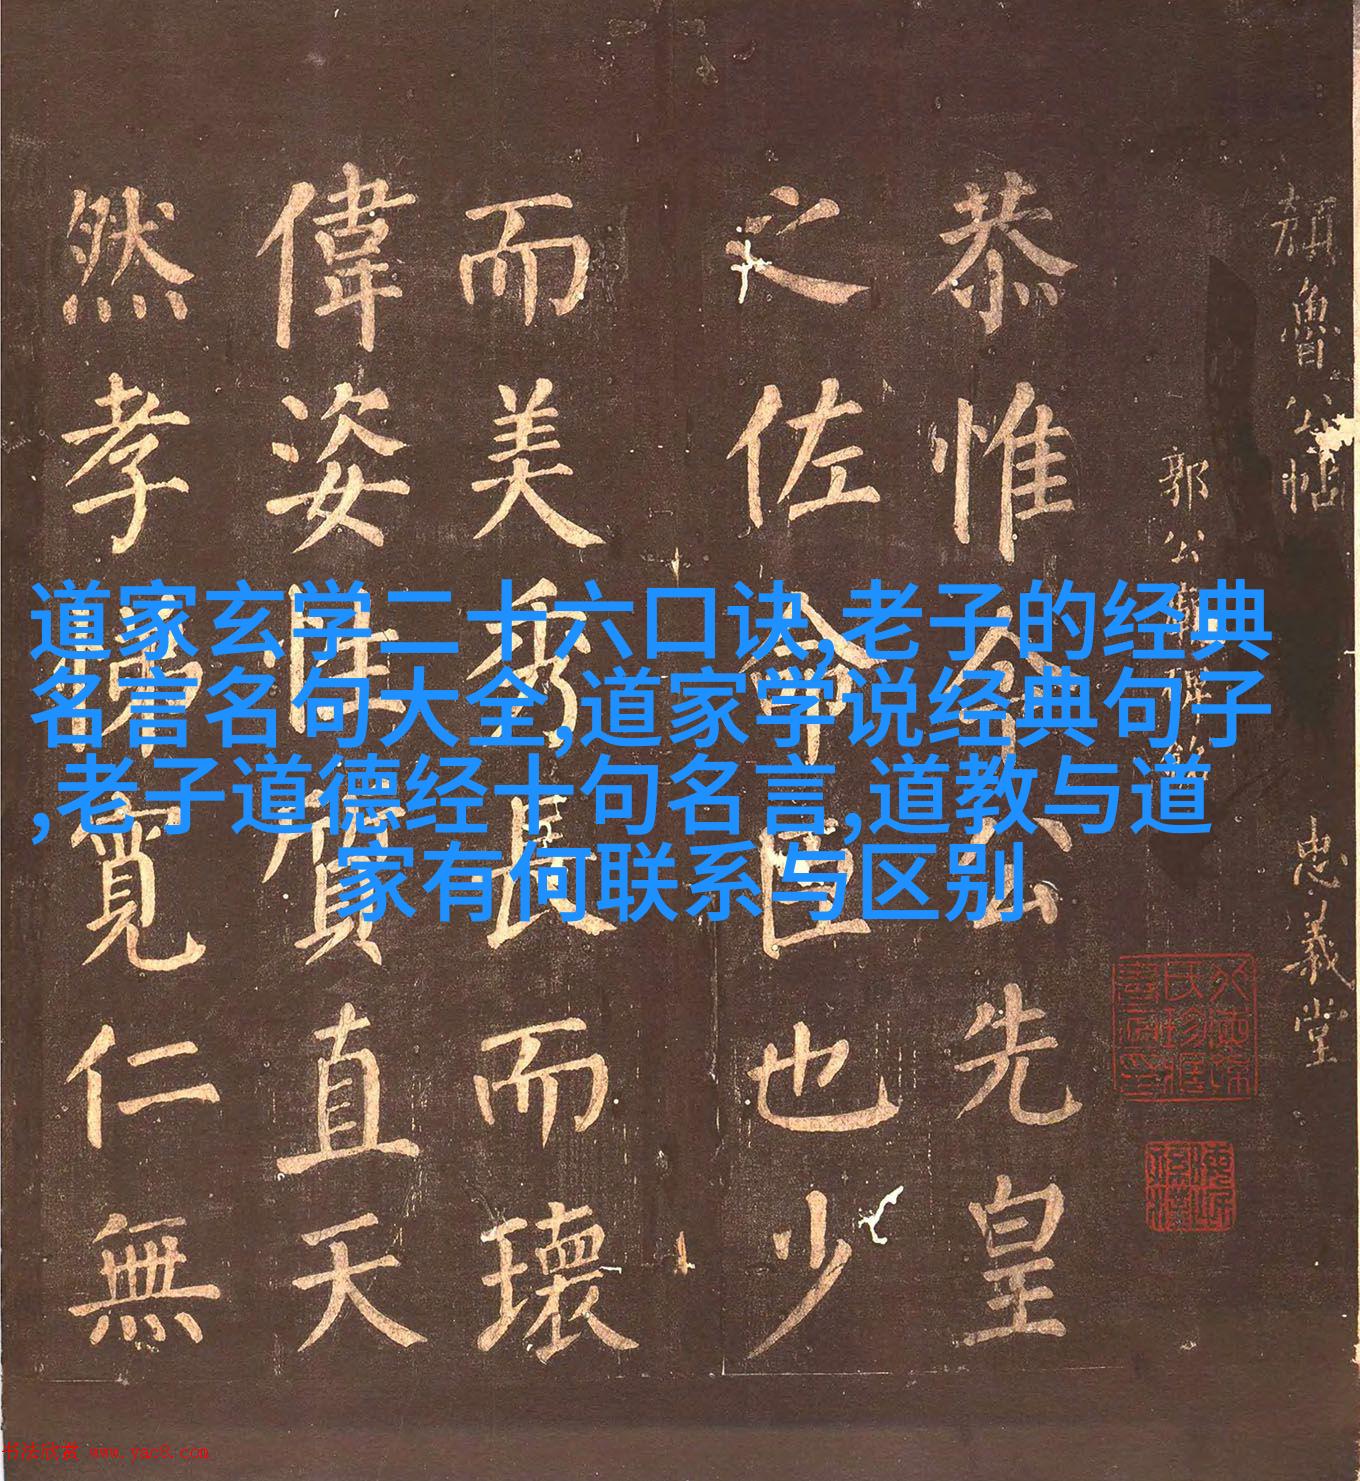 道家玄学二十六口诀,老子的经典
名言名句大全,道家学说经典句子
,老子道德经十句名言,道教与道
家有何联系与区别
顏魯公帖
忠義堂
恭惟
公先皇
之佐命臣也少
而美秀長而瓌
偉姿
質直天
然孝
寬仁無
书法欣赏 www.yac8.com